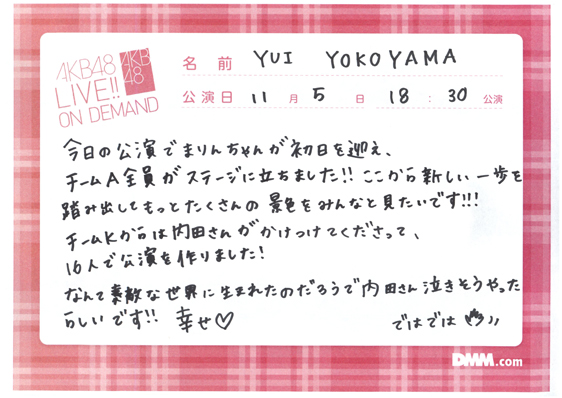 AKB48
LIVE!!
ON DEMAND
AKB
48
名前 YUI YOKOYAMA
公演日 11月5日 18:30公演
今日の公演でまりんちゃんが初日を迎え、
チームA全員がステージに立ちました!! ここから新しい一歩を
踏み出してもっとたくさんの景色をみんなと見たいです!!!
チームKからは内田さんがかけつけてくださって、
16人で公演を作りました!
なんて素敵な世界に生まれたのだろうで内田さん泣きそうやった
らしいです!! 幸せ♡
ではでは
DMM.com